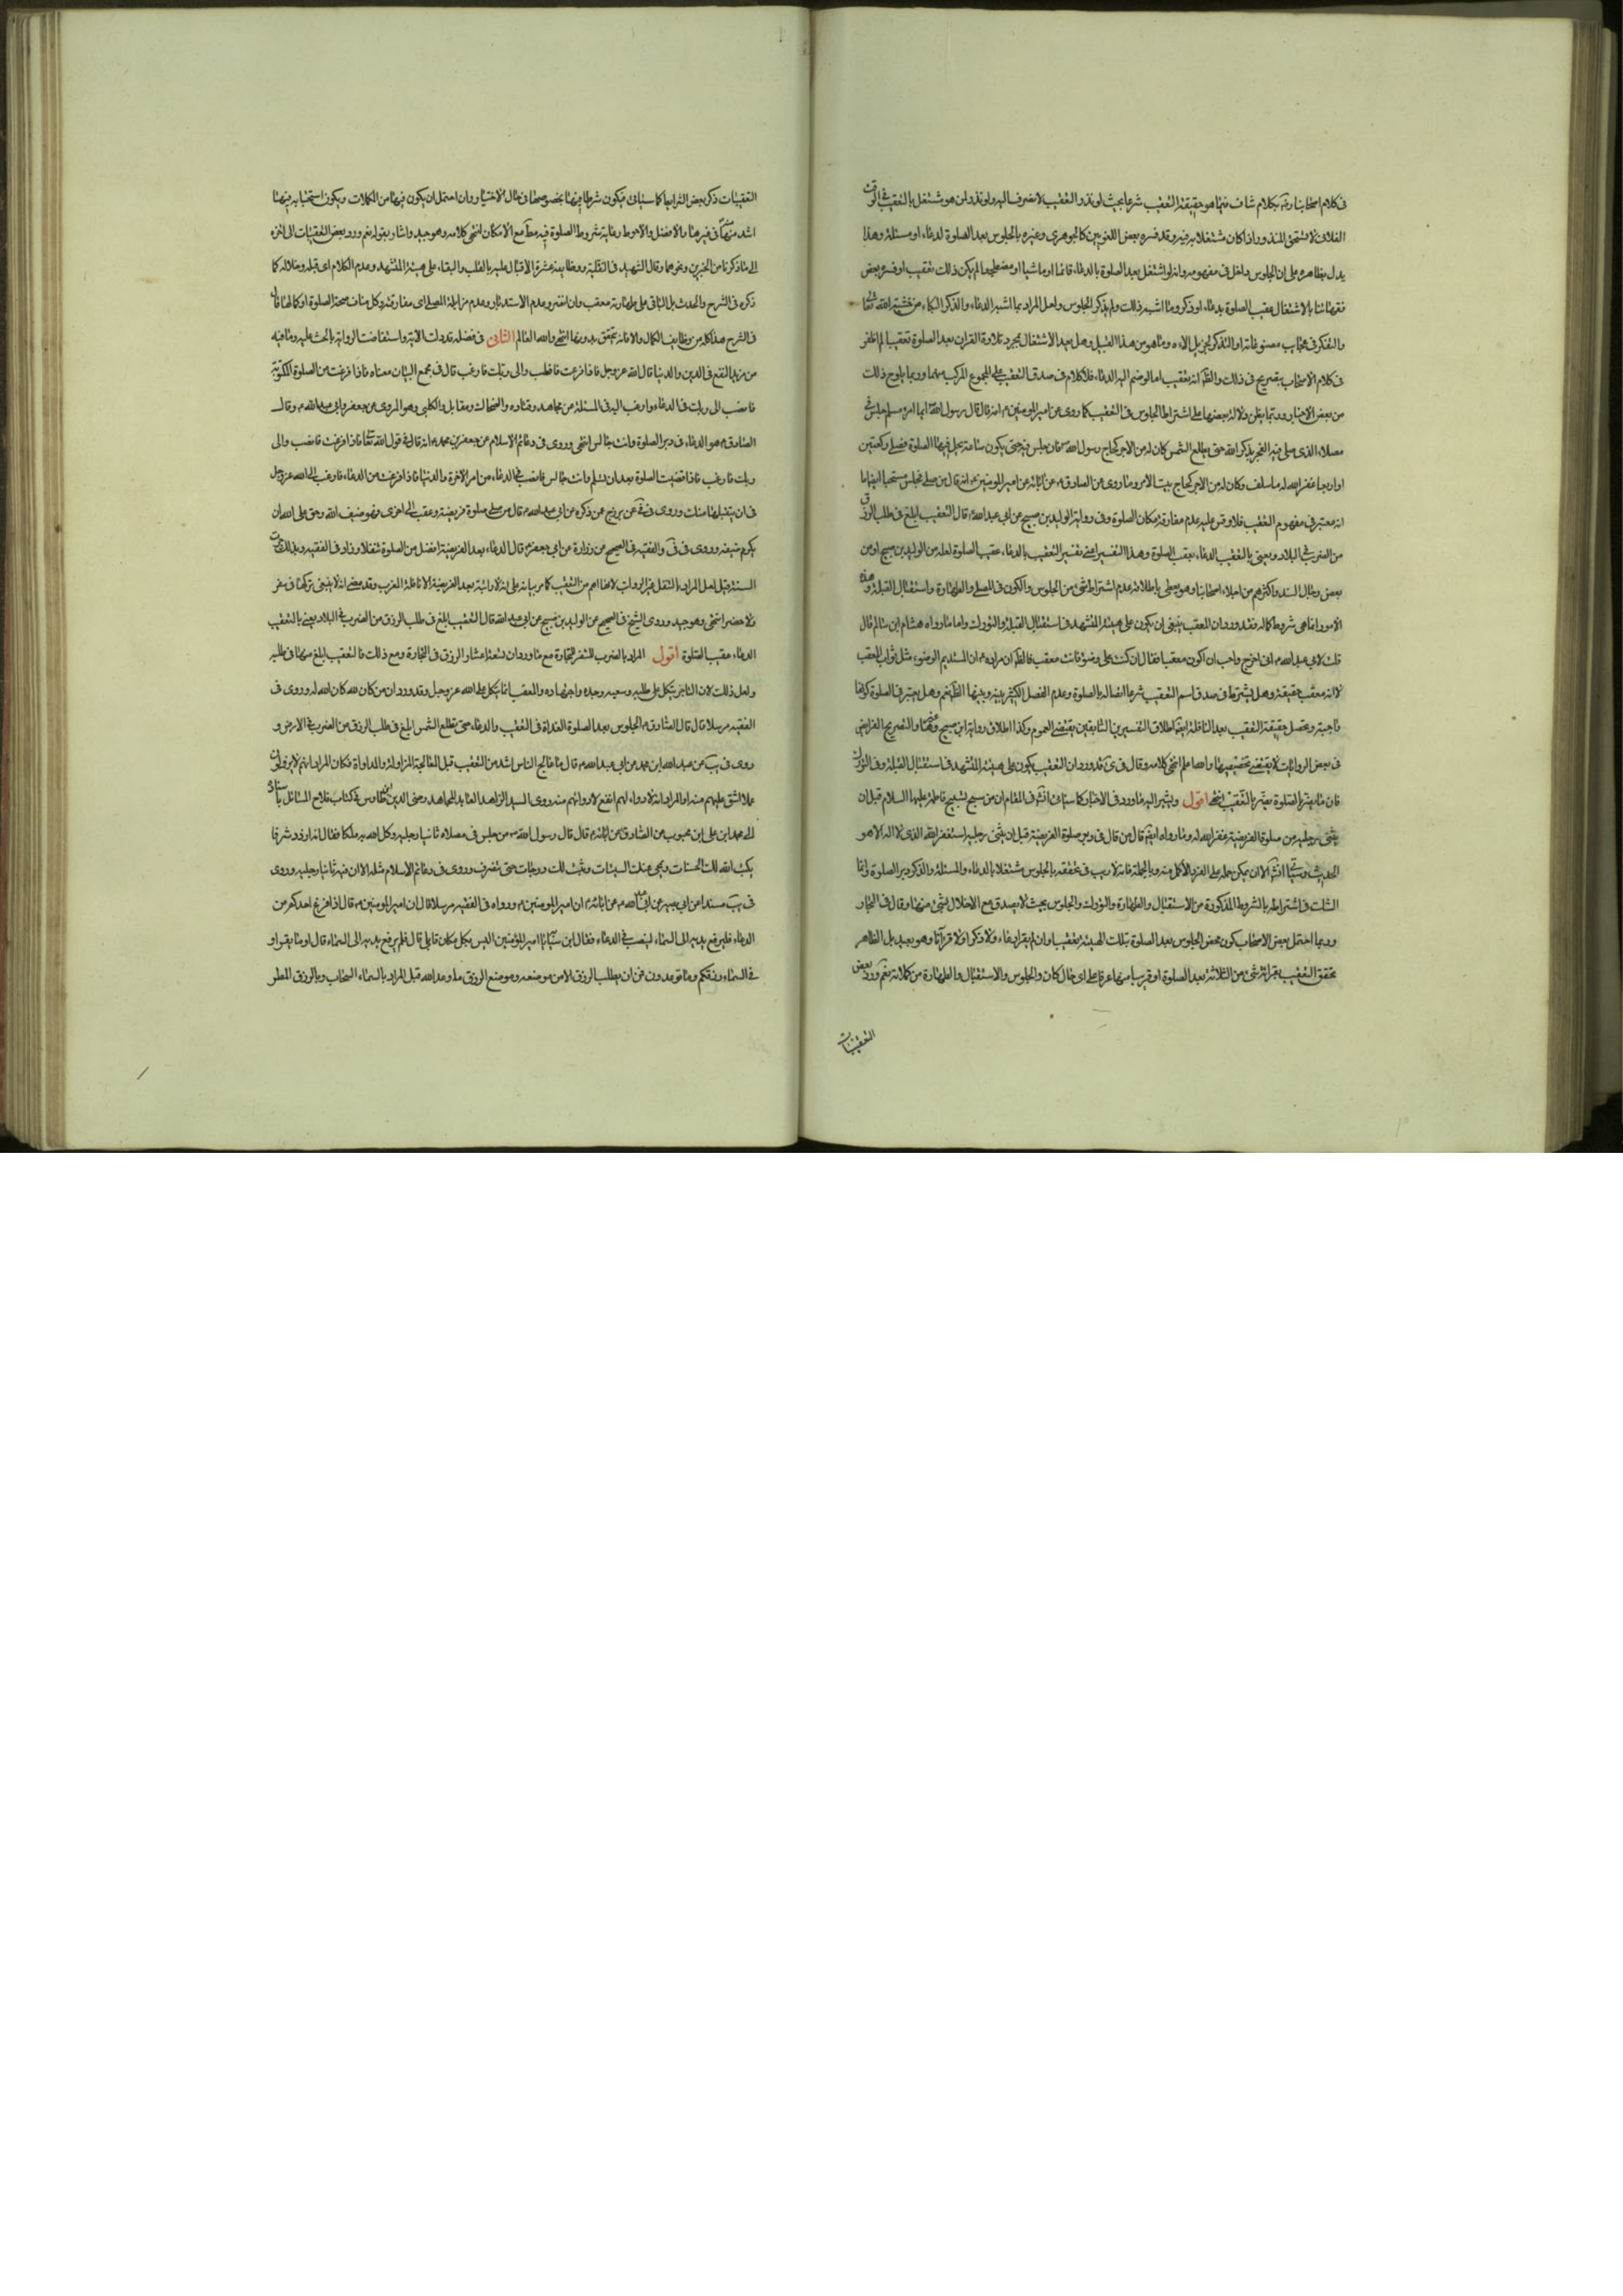 في كلام اصحابنا رضي بكلام شاف فيما هو حقيقة التعقيب شرعا بحيث لو نذر التعقيب لانصرف اليه ولو نذر لمن هو مشتغل بالتعقيب في الوقت
الفلاني لاستحق المنذور اذا كان مشتغلا به فيه وقد فسره بعض اللغويين كالجوهري وغيره بالجلوس بعد الصلوة لدعاء او مسئلة وهذا
يدل بظاهره على ان الجلوس داخل في مفهومه وانه لو اشتغل بعد الصلوة بالدعاء قائما او ماشيا او مضطجعا لم يكن ذلك تعقيبا وفسره بعض
فقهائنا بالاشتغال عقيب الصلوة بدعاء او ذكر وما اشبه ذلك ولم يذكر الجلوس ولعل المراد بما اشبه الدعاء والذكر البكاء من خشية الله تعالى
والتفكر في عجائب مصنوعاته او التذكر لجزيل الاءه وما هو من هذا القبيل وهل يعد الاشتغال بمجرد تلاوة القران بعد الصلوة تعقيبا لم اظفر
في كلام الاصحاب بتصريح في ذلك والظ انه تعقيب اما لو ضم اليه الدعاء فلا كلام في صدق التعقيب على المجموع المركب منهما وربما يلوح ذلك
من بعض الاخبار وربما يظن دلالة بعضها على اشتراط الجلوس في التعقيب كما روى عن امير المومنين انه قال قال رسول الله ايما امرء مسلم جلس في
مصلاه الذي صلى فيه الفجر يذكر الله حتى يطلع الشمس كان له من الاجر كحاج رسول الله فان جلس فيه حتى يكون ساعة يحل فيها الصلوة فصلى ركعتين
او اربعا غفر الله له ما سلف وكان له من الاجر كحاج بيت الله وما روى عن الصادق عن ابائه عن امير المومنين انه قال من صلى فجلس
انه معتبر في مفهوم التعقيب فلا وقس عليه عدم مفارقة مكان الصلوة وفي رواية الوليد بن صبيح عن ابي عبد الله قال التعقيب ابلغ في طلب الرزق
من الضرب في البلاد ويعني بالتعقيب الدعاء بعقب الصلوة وهذا التفسير اعني تفسير التعقيب بالدعاء عقيب الصلوة لعله من الوليد بن صبيح او من
بعض رجال السند واكثرهم من اجلاء اصحابنا وهو يعطي باطلاقه عدم اشتراطه بشيء من الجلوس والكون في المصلى والطهارة واستقبال القبلة وهذه
الامور انما هي شروط كماله فقد ورد ان المعقب ينبغي ان يكون على هيئة المتشهد في استقبال القبلة والتورك واما ما رواه هشام ابن سالم قال
قلت لابي عبد الله اني اخرج واحب ان اكون معقبا فقال ان كنت على وضوء فانت معقب فالظ ان مراده ان المستديم الوضوء مثل ثواب المعقب
لا انه معقب حقيقة وهل يشترط في صدق اسم التعقيب شرعا اتصاله بالصلوة وعدم الفصل الكثير بينه وبينها الظ نعم وهل يعتبر في الصلوة كونها
واجبة او يحصل حقيقة التعقيب بعد النافلة ايضا اطلاق التفسيرين السابقين يقتضي العموم وكذا اطلاق رواية ابن صبيح وغيرها والتصريح بالفرايض
في بعض الروايات لا يقتضي تخصيصها والله اعلم انتهى كلامه وقال في كرى قد ورد ان التعقيب يكون على هيئة المتشهد في استقبال القبلة وفي التورك
فان ما يضر بالصلوة يضر بالتعقيب انتهى اقول ويشير اليه ما ورد في الاخبار كما سياتي في المقام ان من سبح تسبيح فاطمة عليها السلام قبل ان
يثني رجليه من صلوة الفريضة غفر الله له وما رواه ايضا قال من قال في دبر صلوة الفريضة قبل ان يثني رجليه استغفر الله الذي لا اله الا هو
الحديث وسياتي الا ان يمكن حمله على الفرد الاكمل منه وبالجملة فانه لا ريب في تحققه بالجلوس مشتغلا بالدعاء والمسئلة والذكر دبر الصلوة وانما
الشك في اشتراطه بالشروط المذكورة من الاستقبال والطهارة والتورك والجلوس بحيث لا يصدق مع الاخلال بشيء منها وقال في البحار
وربما احتمل بعض الاصحاب كون محض الجلوس بعد الصلوة بتلك الهيئة تعقيبا وان لم يقرا دعاء ولا ذكرا ولا قرآنا وهو بعيد بل الظاهر
تحقق التعقيب بقراءة شيء من الثلاثة بعد الصلوة او قريبا منها عرفا على اي حال كان والجلوس والاستقبال والطهارة من كمالاته نعم ورد بعض
التعقيبات
التعقيبات ذكر بعض الشرايط كما سياتي فيكون شرطا فيها بخصوصها في حال الاختيار وان احتمل ان يكون فيها من المكملات ويكون استحبابه فيها
اشد منها في غيرها والافضل والاحوط رعاية شروط الصلوة فيه مط مع الامكان انتهى كلامه وهو جيد واشار بقوله نعم ورد بعض التعقيبات الى اخره
الى ما ذكرنا من الخبرين ونحوهما وقال الشهيد في النفلية ووظايفه عشرة الاقبال عليه بالقلب والبقاء على هيئة المتشهد وعدم الكلام اي قبله وخلاله كما
ذكره في الشرح والحدث بل الباقي على طهارته معقب وان انصرف وعدم الاستدبار وعدم مزايلة المصلى اي مفارقته وكل مناف صحة الصلوة او كمالها قال
في الشرح هذا كله من وظايف الكمال والا فانه يتحقق بدونها انتهى والله العالم الثاني في فضله قد دلت الاية واستفاضت الرواية بالحث عليه وما فيه
من مزيد النفع في الدين والدنيا قال الله عز وجل فاذا فرغت فانصب والى ربك فارغب قال في مجمع البيان معناه فاذا فرغت من الصلوة المكتوبة
فانصب الى ربك في الدعاء وارغب اليه في المسئلة عن مجاهد وقتاده والضحاك ومقاتل والكلبي وهو المروي عن جعفر وابي عبد الله وقال
الصادق هو الدعاء في دبر الصلوة وانت جالس انتهى وروى في دعائم الاسلام عن جعفر بن محمد انه قال في قول الله تعالى فاذا فرغت فانصب والى
ربك فارغب فاذا قضيت الصلوة بعد ان تسلم وانت جالس فانصب في الدعاء من امر الاخرة والدنيا فاذا فرغت من الدعاء فارغب الى الله عز وجل
في ان يتقبلها منك وروى في عن بزيع عن ذكره عن ابي عبد الله قال من صلى صلوة فريضة وعقب الى اخرى فهو ضيف الله وحق على الله ان
يكرم ضيفه وروى في في والفقيه في الصحيح عن زرارة عن ابي جعفر قال الدعاء بعد الفريضة افضل من الصلوة تنفلا وزاد في الفقيه وبذلك جرت
السنة قيل لعل المراد بالتنفل غير الرواتب لانها اهم من التعقيب كما مر بيانه على انه لا راتبة بعد الفريضة الا نافلة المغرب وقد مضى انه لا ينبغي تركها في سفر
ولا حضر انتهى وهو جيد وروى الشيخ في الصحيح عن الوليد بن صبيح عن ابي عبد الله قال التعقيب ابلغ في طلب الرزق من الضرب في البلاد يعني بالتعقيب
الدعاء عقيب الصلوة اقول المراد بالضرب السفر للتجارة مع ما ورد ان تسعة اعشار الرزق في التجارة ومع ذلك فالتعقيب ابلغ منها في طلبه
ولعل ذلك لان التاجر يتكل على طلبه وسعيه وجده واجتهاده والمعقب انما يتكل على الله عز وجل وقد ورد ان من كان لله كان الله له وروى في
الفقيه مرسلا قال قال الصادق الجلوس بعد الصلوة الغداة في التعقيب والدعاء حتى تطلع الشمس ابلغ في طلب الرزق من الضرب في الارض و
روى في يب عن عبد الله ابن محمد عن ابي عبد الله قال ما عالج الناس اشد من التعقيب قيل المعالجة المزاولة والمداواة فكان المراد انهم لا يزاولون
عملا اشق عليهم منه او المراد انه لا دواء لهم انفع لادوائهم منه وروى السيد الزاهد العابد المجاهد رضي الدين ابن طاوس في كتاب فلاح السائل باسناده
الى محمد ابن علي ابن محبوب عن الصادق عن ابائه قال قال رسول الله من جلس في مصلاه ثانيا رجليه وكل الله به ملكا فقال له ازدد شرفا
يكتب الله لك الحسنات ويمحي عنك السيئات وتثبت لك درجات حتى تنصرف وروى في دعائم الاسلام مثله الا ان فيه ثانيا رجليه وروى
في يب مسندا عن ابي بصير عن ابي عبد الله عن ابائه ان امير المومنين ورواه في الفقيه مرسلا قال ان امير المومنين قال اذا فرغ احدكم من
الدعاء فليرفع يديه الى السماء لينصب في الدعاء فقال ابن سبا يا امير المؤمنين اليس بكل مكان قال بلى قال فلم يرفع يديه الى السماء قال او ما يقراو
في السماء رزقكم وما توعدون فمن اين يطلب الرزق الا من موضعه وموضع الرزق ما وعد الله قيل المراد بالسماء السحاب وبالرزق المطر